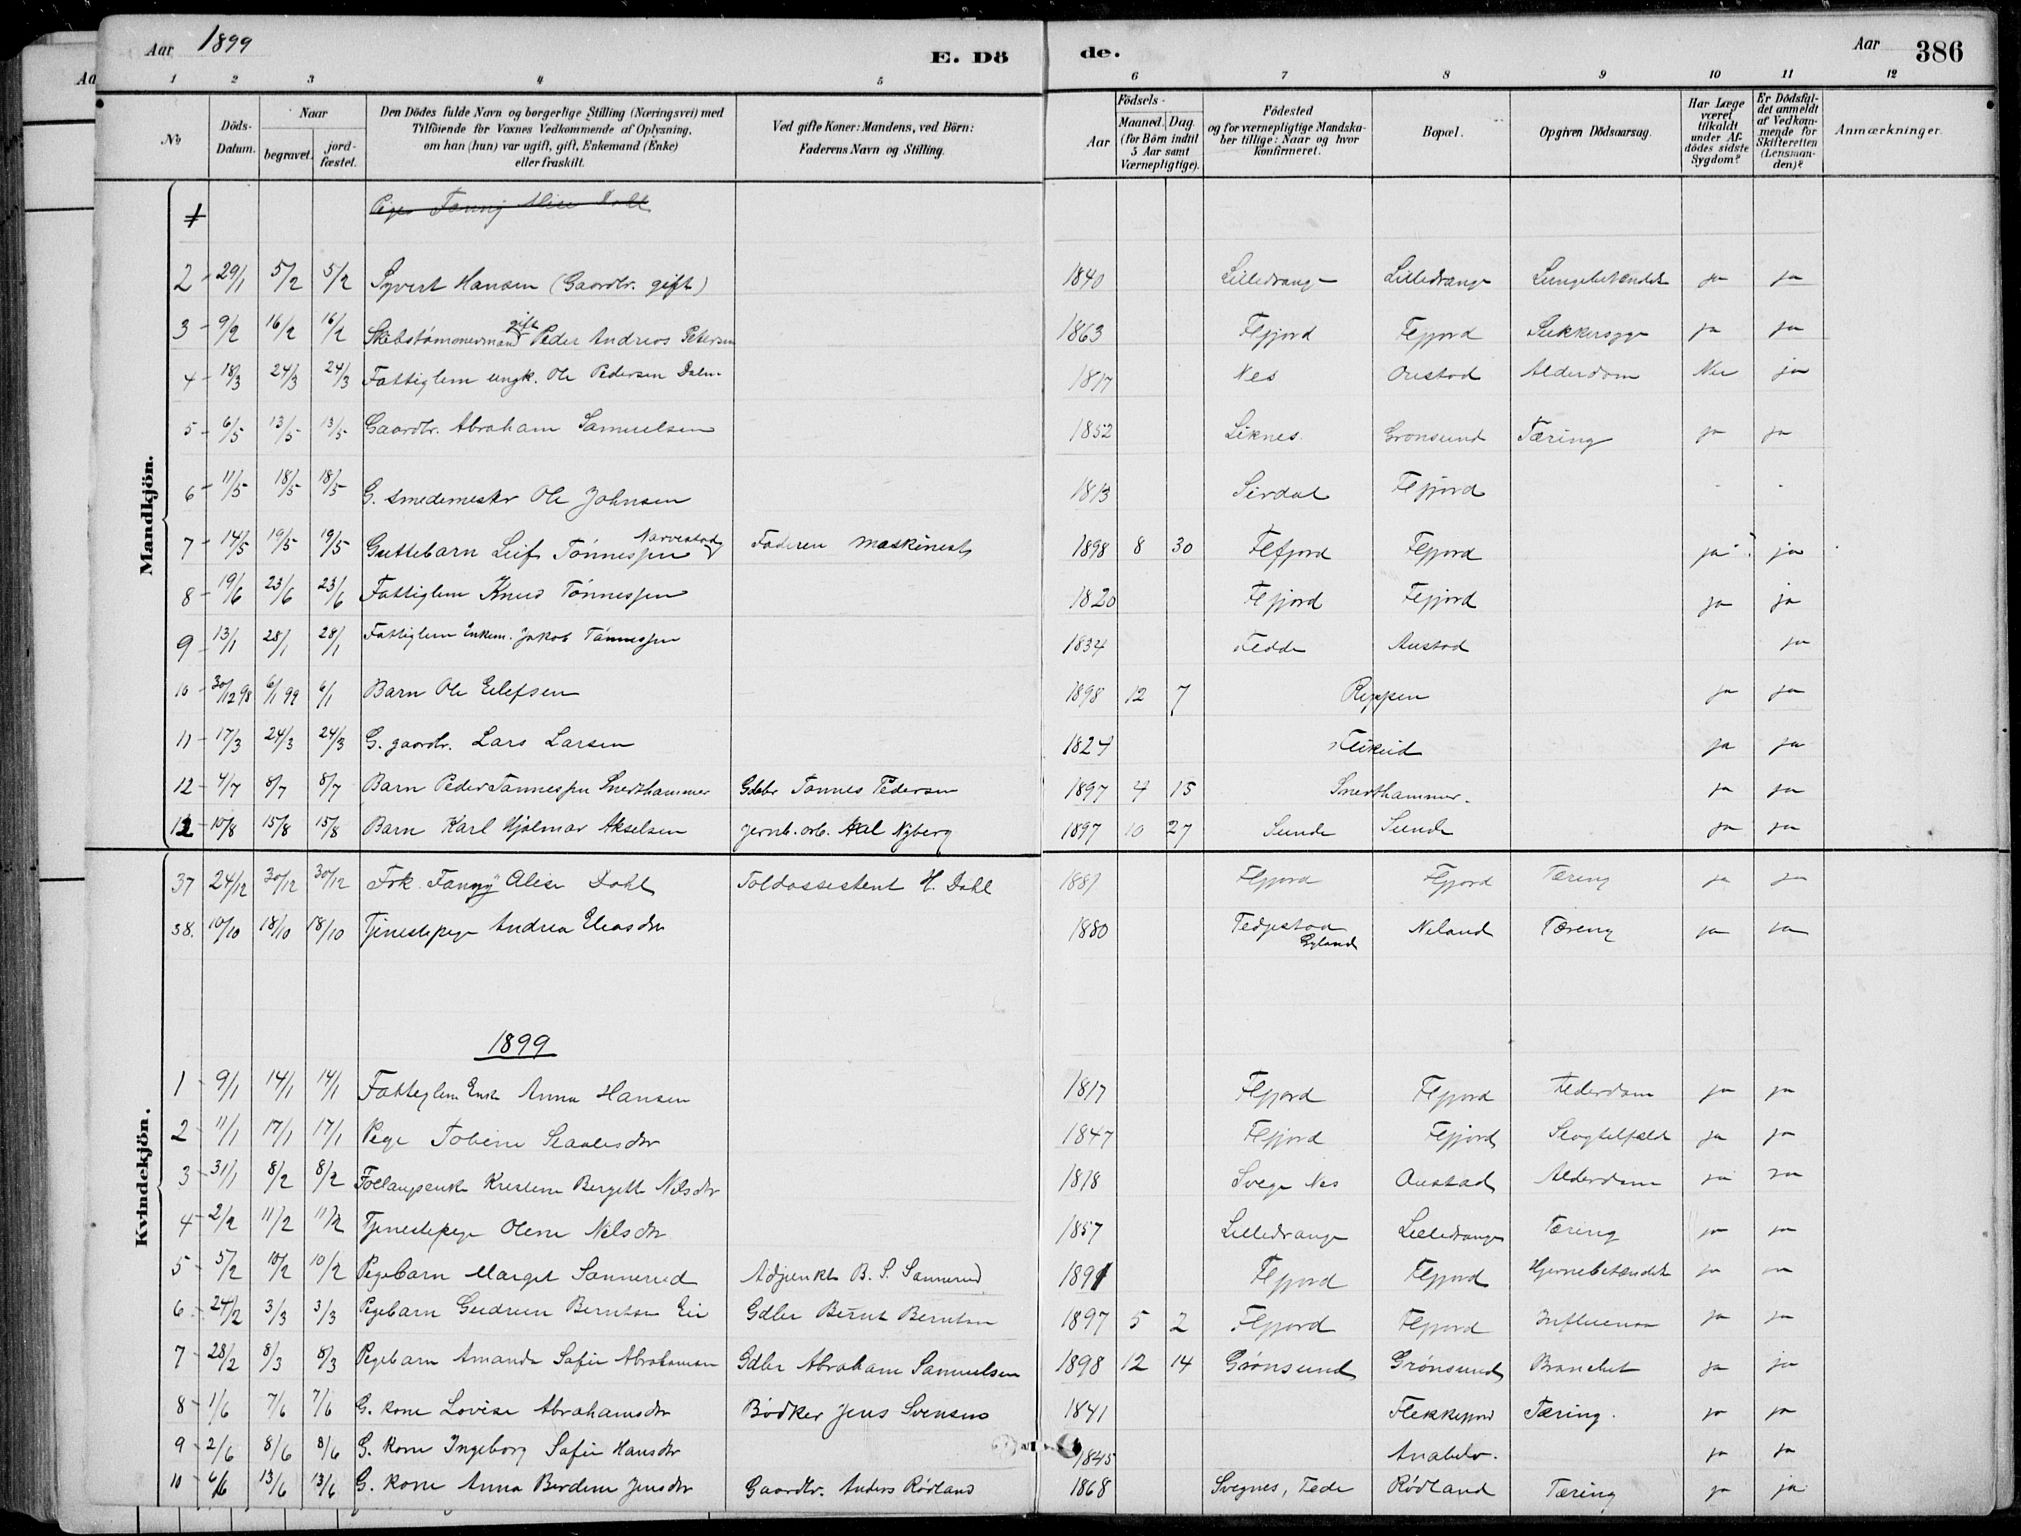 Aar 1899
E. Dö
de.
Aar
386
1 2 3 4 5 6 7 8 9 10 11 12
No
Döds-Datum.
Naar
begravet.
jord-fæstet.
Den Dödes fulde Navn og borgerlige Stilling (Næringsvei) med
Tilföiende for Voxnes Vedkommende af Oplysning,
om han (hun) var ugift, gift, Enkemand (Enke)
eller fraskilt.
Ved gifte Koner: Mandens, ved Börn:
Faderens Navn og Stilling.
Födsels-
Aar
Maaned. Dag.
(for Börn indtil
5 Aar samt
Værnepligtige).
Födested
og for værnepligtige Mandska-
ber tillige: Naar og hvor
konfirmeret.
Bopæl.
Opgiven Dödsaarsag.
Har Læge
været
tilkaldt
under Af-
dödes sidste
Sygdom?
Er Dödsfal-
det anmeldt
af Vedkom-
mende for
Skifteretten
(Lensman-
den)?
Anmærkninger.
Mandkjön.
1 Pige Fanny Alise Dahl
2 29/1 5/2 5/2 Syvert Hansen (Gaardbr. gift) 1840 Lilledrange Lilledrange Lungebetændelse ja ja
3 9/2 16/2 16/2 Skibstømmermand gift Peder Andreas Petersen 1863 Flfjord Flfjord Sukkersyge ja ja
4 18/3 24/3 24/3 Fattiglem ungk. Ole Pedersen 1817 Nes Austad Alderdom Nei ja
5 6/5 13/5 13/5 Gaardbr. Abraham Samuelsen 1852 Liknes Grønsund Tæring ja ja
6 11/5 18/5 18/5 G. smedemester Ole Johnsen 1813 Sirdal Flfjord
7 14/5 19/5 19/5 Guttebarn Leif Tønnessen Narvestad Faderen Maskinest 1898 8 30 Flfjord Flfjord ja ja
8 19/6 23/6 23/6 Fattiglem Knud Tønnessen 1820 Flfjord Flfjord ja ja
9 13/1 28/1 28/1 Fattiglem Enkem. Jakob Tønnessen 1834 Fedde Austad ja
10 30/12 98 6/1 99 6/1 Barn Ole Eilefsen 1898 12 7 Reppen ja ja
11 17/3 24/3 24/3 G. gaardbr. Lars Larsen 1824 Flikeid ja ja
12 4/7 8/7 8/7 Barn Peder Tønnessen Snerthammer Gdbr Tønnes Pedersen 1897 4 15 Snerthammer. ja ja
12 10/8 15/8 15/8 Barn Karl Hjalmar Akselsen jernb. arb. Aksel Nyberg 1897 10 27 Sunde Sunde ja ja
Kvindekjön.
37 24/12 30/12 30/12 Frk. Fanny Alise Dahl Toldassistent H. Dahl 1881 Flfjord Flfjord Tæring ja ja
38. 10/10 18/10 18/10 Tjenestepige Andrea Eliasdtr 1880 Gyland Niland Tæring ja ja
1899
1 9/1 14/1 14/1 Fattiglem Enke Anna Hansen 1817 Flfjord Flfjord Alderdom ja ja
2 11/1 17/1 17/1 Pige Tobine Staalesdtr 1847 Flfjord Flfjord Slagtilfælde ja ja
3 31/1 8/2 8/2 Kristine Bergitte Nilsdtr 1818 Svege Nes Austad Alderdom ja ja
4 2/2 11/2 11/2 Tjenestepige Olene Nilsdtr 1857 Lilledrange Lilledrange Tæring ja ja
5 5/2 10/2 10/2 Pigebarn Marget Sannerud Adjunkt B. S. Sannerud 1891 Flfjord Flfjord Hjernebetændelse ja ja
6 24/2 3/3 3/3 Pigebarn Gudrun Berntsen Eie Gdbr Bernt Berntsen 1897 5 2 Flfjord Flfjord Influensa ja ja
7 28/2 8/3 8/3 Pigebarn Amanda Safie Abrahamsen Gdbr Abraham Samuelsen 1898 12 14 Grønsund Grønsund Bronchit ja ja
8 1/6 7/6 7/6 G. kone Lovise Abrahamsdtr Bødker Jens Svensens 1841 Flekkefjord Tæring. ja ja
9 2/6 8/6 8/6 G. kone Ingeborg Safie Hansdtr 1845 Anabelø. ja ja
10 6/6 13/6 13/6 G. kone Anna Berdine Jensdtr Gaardbr. Anders Rødland 1868 Svegnes, Fede Rødland Tæring ja ja